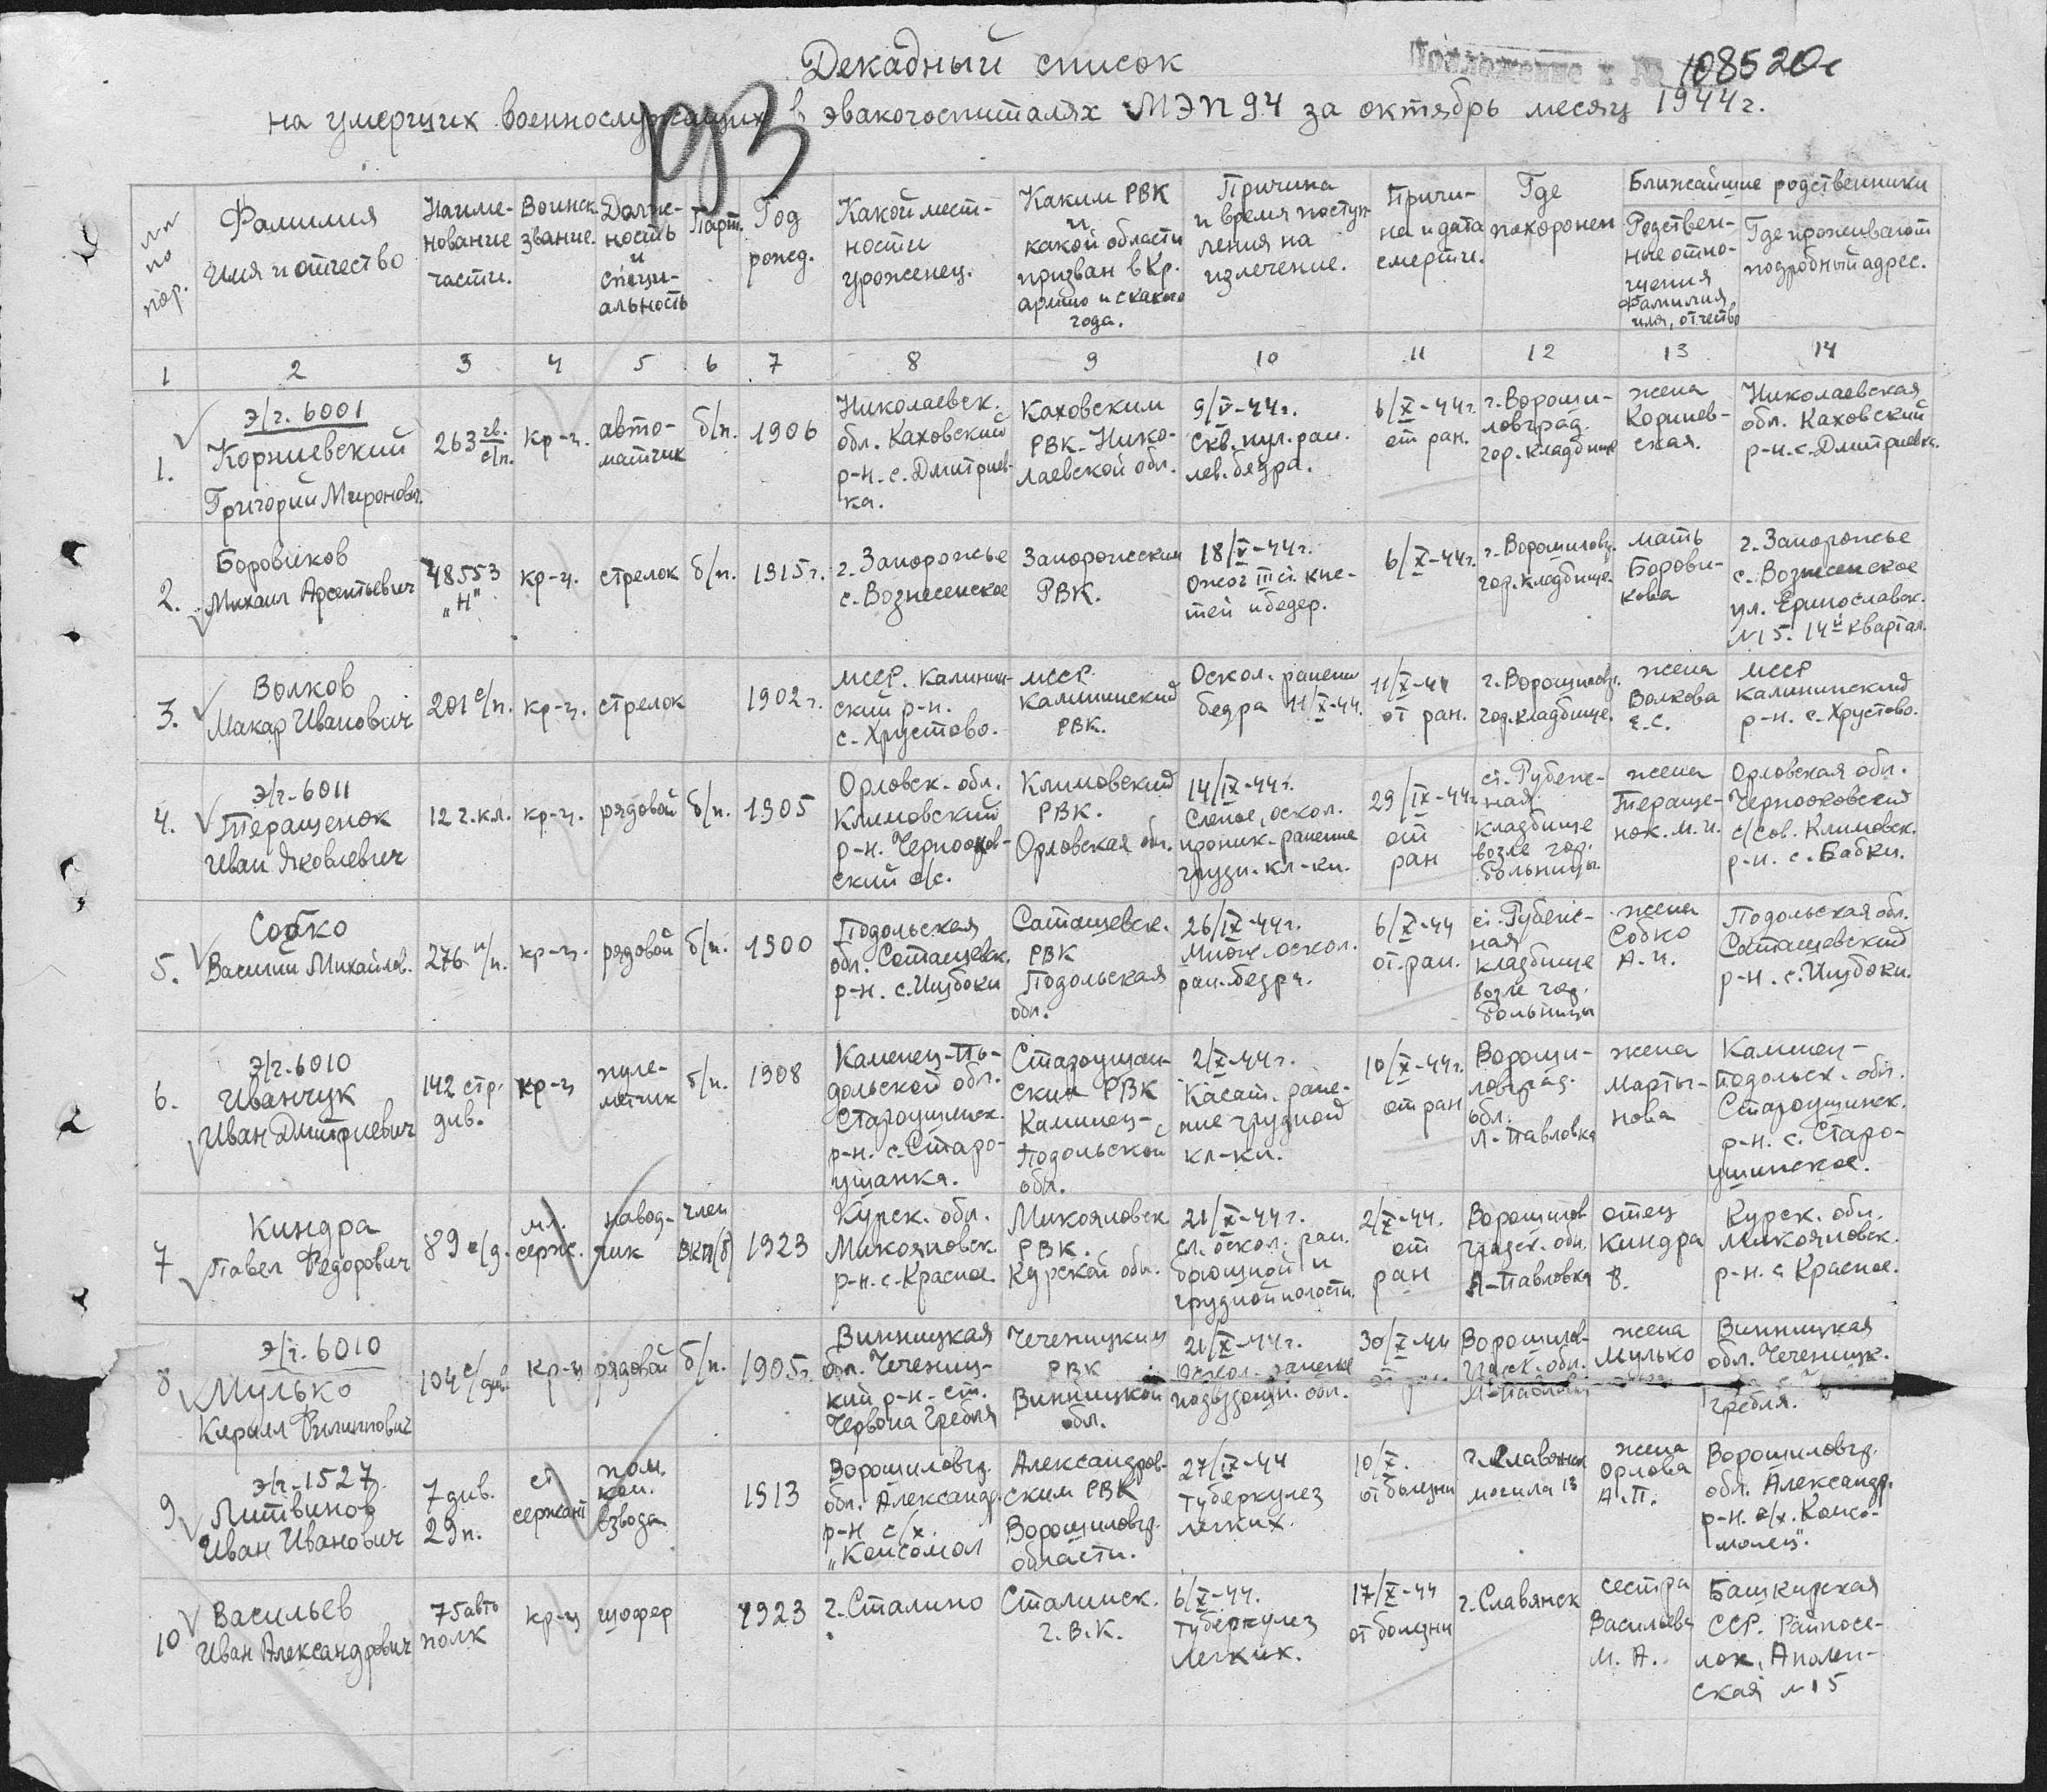 Декадный список
Приложение к № 108520с
на умерших военнослужащих в эвакогоспиталях МЭП 94 за октябрь месяц 1944 г.
№№ по пор.
Фамилия Имя и отчество
Наиме-нование части.
Воинск. звание.
Долж-ность и специ-альность
Парт.
Год рожд.
Какой мест-ности уроженец.
Каким РВК и какой области призван в Кр. армию и с какого года.
Причина и время поступ-ления на излечение.
Причи-на и дата смерти.
Где похоронен
Ближайшие родственники
Родствен-ные отно-шения Фамилия имя, отчество
Где проживают подробный адрес.
1 2 3 4 5 6 7 8 9 10 11 12 13 14
1.
Э/г. 6001
Корниевский
Григорий Миронов.
263 гв. с/п.
кр-ц.
авто-матчик
б/п.
1906
Николаевск. обл. Каховский р-н. с. Дмитриев-ка.
Каховским РВК. Нико-лаевской обл.
9/V-44 г. Скв. пул. ран. лев. бедра.
6/X-44 г. от ран.
г. Вороши-ловград. гор. кладбище
жена Корниев-ская.
Николаевская обл. Каховский р-н. с. Дмитриевка.
2.
Боровиков
Михаил Арсентьевич
48553 "Н"
кр-ц.
стрелок
б/п.
1915 г.
г. Запорожье с. Вознесенское
Запорожским РВК.
18/V-44 г. Ожог III ст. кис-тей и бедер.
6/X-44 г.
г. Ворошиловг. гор. кладбище.
мать Борови-кова
г. Запорожье с. Вознесенское ул. Ермославск. №15. 14й квартал.
3.
Волков
Макар Иванович
201 с/п.
кр-ц.
стрелок
1902 г.
МССР. Калинин-ский р-н. с. Хрустово.
МССР. Калининский РВК.
Оскол. ранение бедра 11/X-44.
11/X-44 от ран.
г. Ворошиловг. гор. кладбище.
жена Волкова Е.С.
МССР Калининский р-н. с. Хрустово.
4.
Э/г. 6011
Теращенок
Иван Яковлевич
12 г.кл.
кр-ц.
рядовой
б/п.
1905
Орловск. обл. Климовский р-н. Чернооков-ский с/с.
Климовский РВК. Орловская обл.
14/IX-44 г. Слепое, оскол. проник. ранение грудн. кл-ки.
29/IX-44 г. от ран
ст. Рубеж-ная. кладбище возле гор. больницы.
жена Тераще-нок. М.И.
Орловская обл. Чернооковский с/сов. Климовск. р-н. с. Бабки.
5.
Собко
Василий Михайлов.
276 п/п.
кр-ц.
рядовой
б/п.
1900
Подольская обл. Соташевск. р-н. с. Шубоки
Саташевск. РВК Подольская обл.
26/IX-44 г. Множ. оскол. ран. бедра.
6/X-44 от. ран.
ст. Рубеж-ная кладбище возле гор. больницы
жена Собко А.И.
Подольская обл. Саташевский р-н. с. Шубоки.
6.
Э/г. 6010
Иванчук
Иван Дмитриевич
142 стр. див.
кр-ц
пуле-метчик
б/п.
1908
Каменец-По-дольской обл. Староушинск. р-н. с. Старо-ушанка.
Староушан-ским РВК Каминец-Подольской обл.
2/X-44 г. Касат. ране-ние грудной кл-ки.
10/X-44 г. от ран
Вороши-ловград. обл. Л-Павловка
жена Марты-нова
Каминец-Подольск. обл. Староушинск. р-н. с. Старо-ушинское.
7
Киндра
Павел Федорович
89 с/д.
мл. серж.
навод-чик
член ВКП(б)
1923
Курск. обл. Микояновск. р-н. с. Красное
Микояновск РВК. Курской обл.
21/IX-44 г. сл. оскол. ран. брюшной и грудной полости.
2/X-44. от ран
Ворошилов-градск. обл. Л-Павловка
отец Киндра Ф.
Курск. обл. Микояновск. р-н. с Красное.
8
Э/г. 6010
Мулько
Кирилл Филиппович
104 с/див.
кр-ц
рядовой
б/п.
1905 г.
Винницкая обл. Чечениц-кий р-н. ст. Червона Гребля
Чеченицким РВК Винницкой обл.
21/X-44 г. Оскол. ранение позвздошн. обл.
30/X-44 от ран
Ворошилов-градск. обл. Л-Павловка
жена Мулько
Винницкая обл. Чеченицк. Гребля.
9
Э/г. 1527
Литвинов
Иван Иванович
7 див. 29 п.
ст сержант
пом. ком. взвода
1913
Ворошиловгр. обл. Александр. р-н с/х. "Комсомол
Александров-ским РВК Ворошиловгр. области.
27/IX-44 туберкулез легких.
10/X. от болезни
г. Славянск могила 13
жена Орлова А.П.
Ворошиловгр. обл. Александр. р-н. с/х. "Комсо-молец".
10
Васильев
Иван Александрович
75 авто полк
кр-ц
шофер
1923
г. Сталино
Сталинск. Г.В.К.
6/X-44. туберкулез легких.
17/X-44 от болезни
г. Славянск
сестра Васильева М.А.
Башкирская ССР. Райпосе-лок, Аполен-ская №15